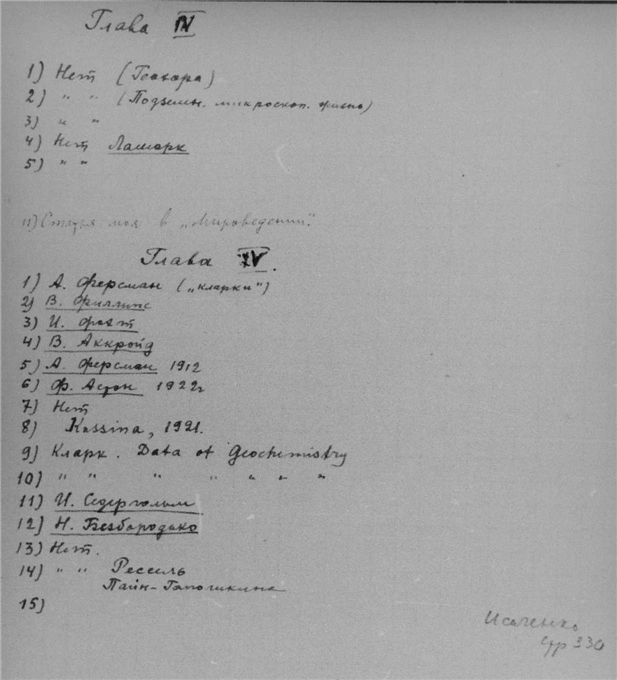 Глава IV
1) Нет (Геохора)
2) " " (Подземн. микроскоп. жизнь)
3) " "
4) Нет Ламарк
5) " "
11) Статья моя в „Мироведении".
Глава XV.
1) А. Ферсман („кларки")
2) В. Филлипс
3) И. Фогт
4) В. Аккройд
5) А. Ферсман 1912
6) Ф. Астон 1922г
7) Нет
8) Kossina, 1921.
9) Кларк. Data of Geochemistry
10) " " " " " " "
11) И. Седергольм
12) Н. Безбородько
13) Нет.
14) " " Рессель
Пайн-Гапошкина
15)
Исаченко
стр 330